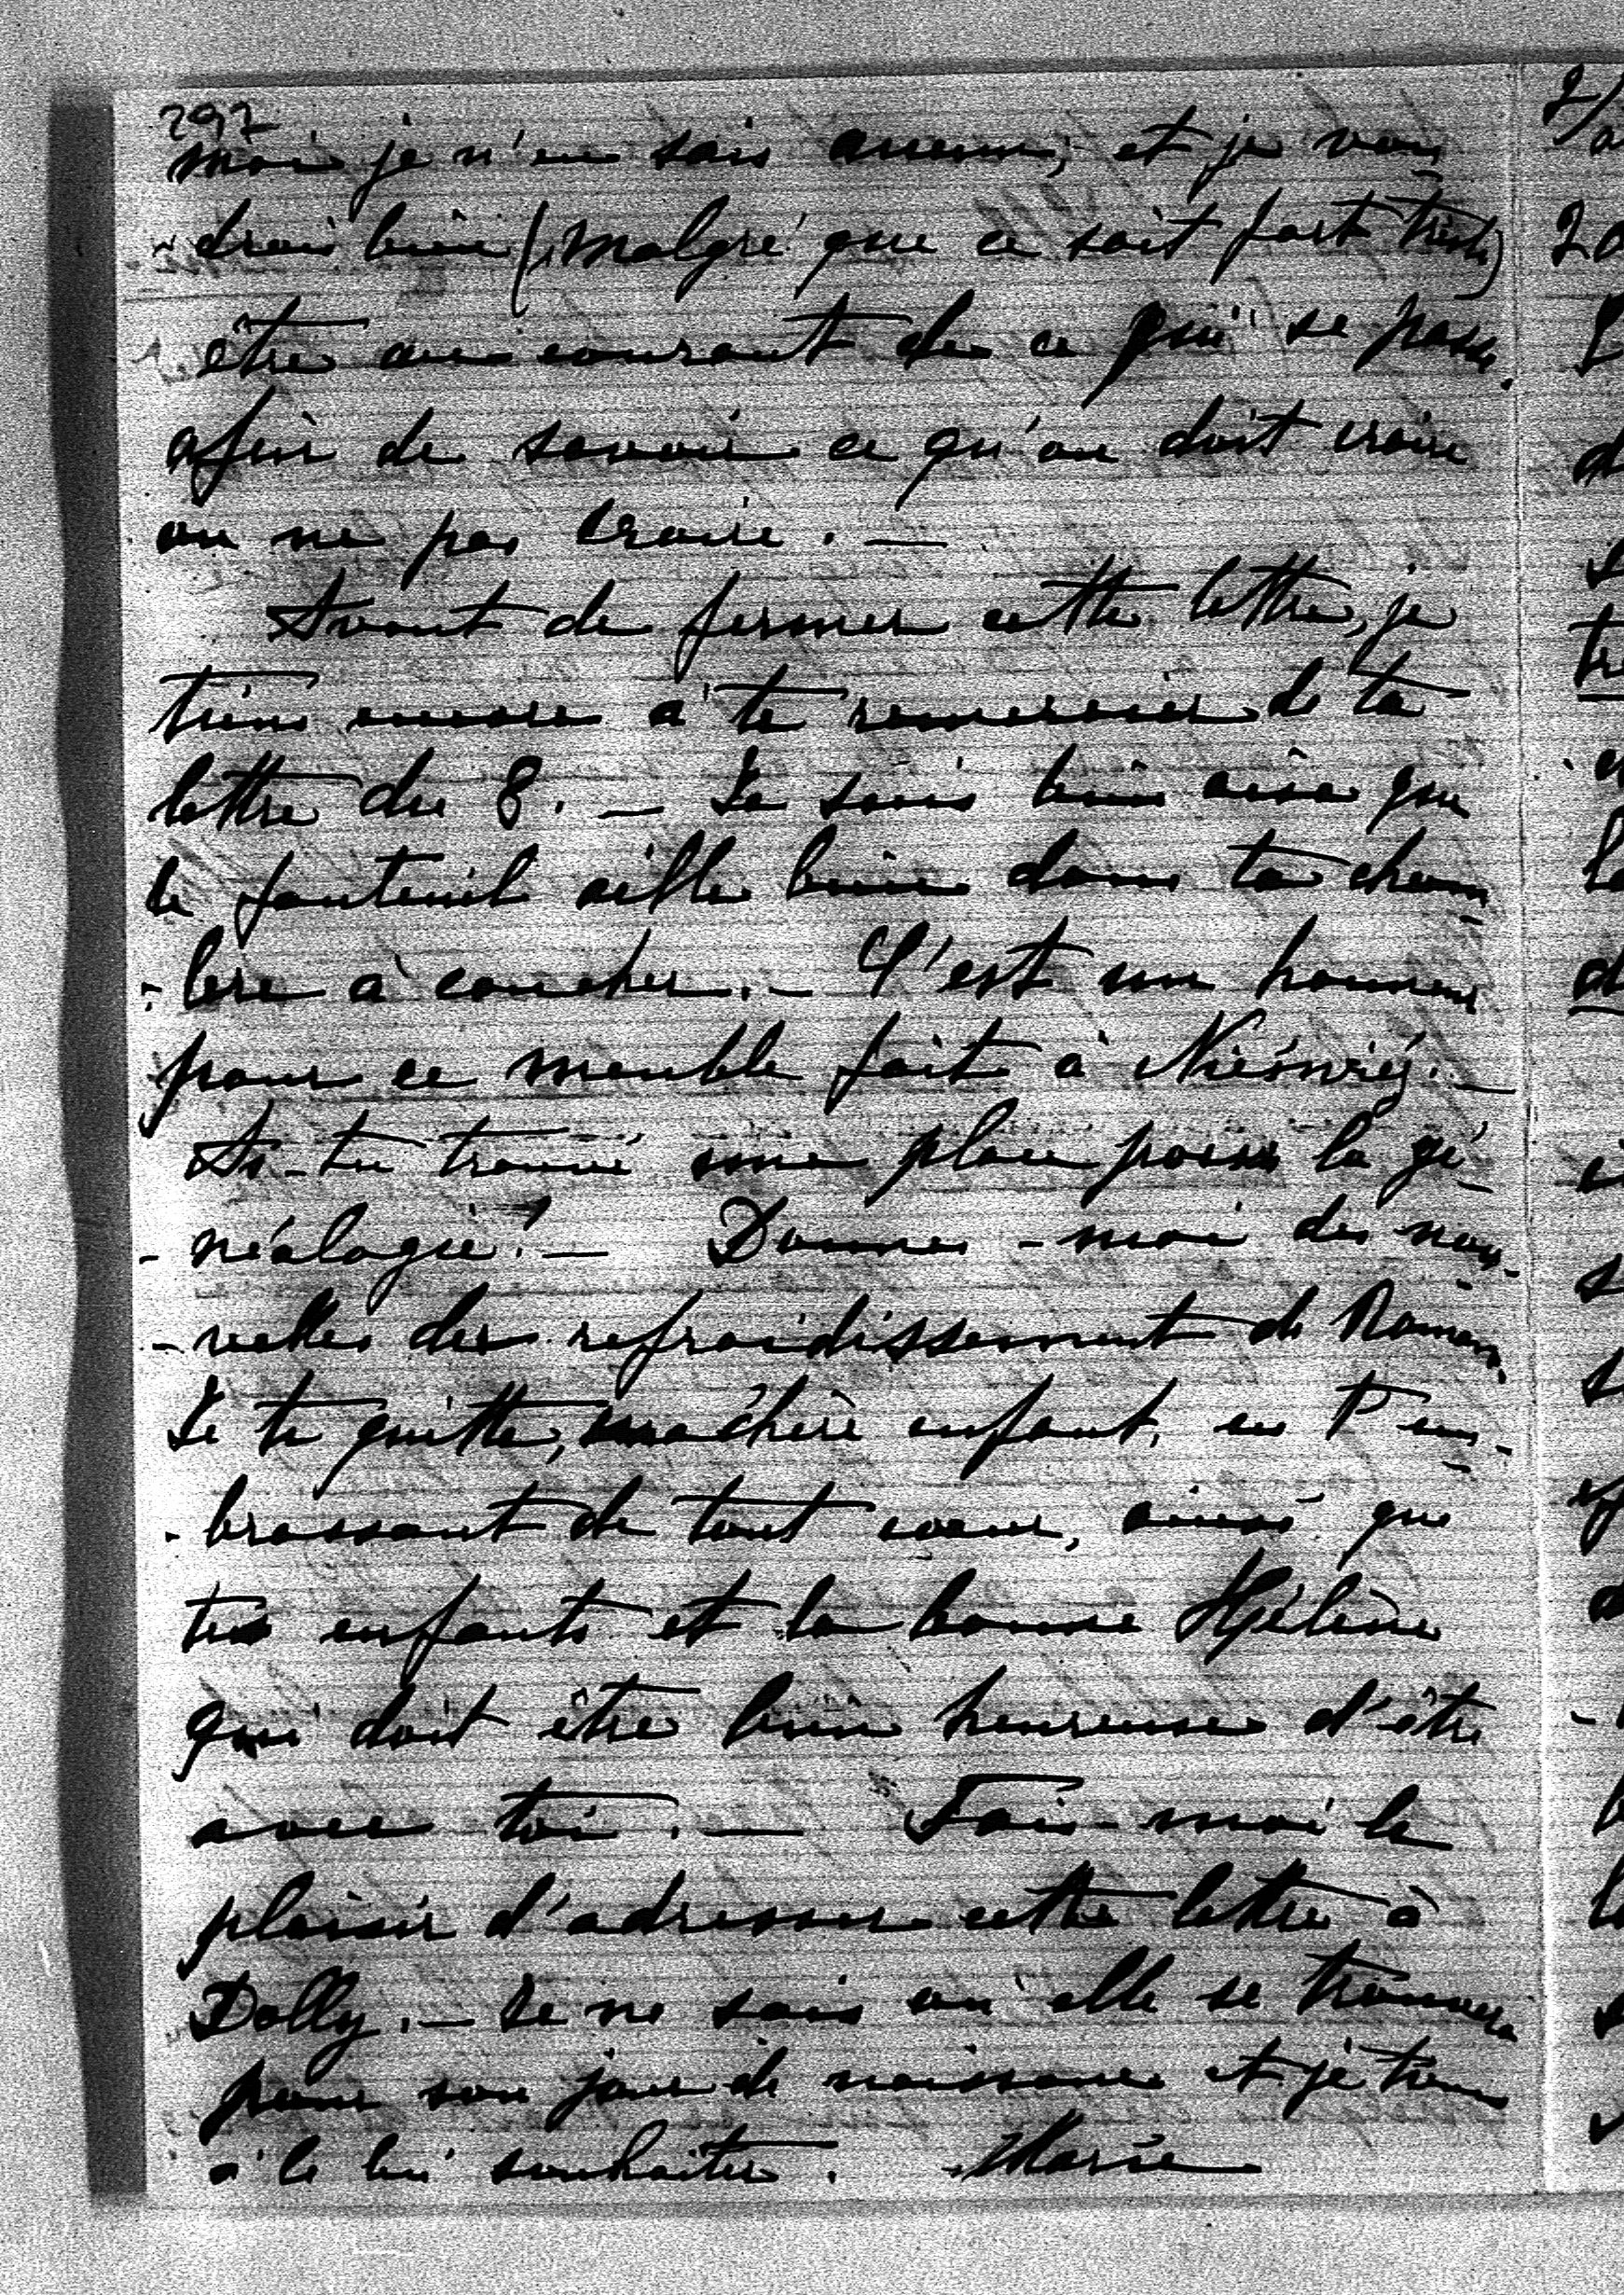 297
moi je n'en sais aucun; et je vou
-drai bien (malgré que ce soit fort triste)
être au courant de ce qui se passe,
afin de savoir ce qu'on doit croire
ou ne pas croire. —
Avant de fermer cette lettre, je
tiens encore à te remercier de ta
lettre du 8. — Je suis bien aise que
le fauteuil aille bien dans ta cham
-bre à coucher. — C'est un honneur
pour ce meuble fait à Nieśwież. —
As-tu trouvé une place pour la gé-
-néalogie? — Donnes-moi des nou-
-velles du refroidissement de Roman.
Je te quitte, ma chère enfant, en t'em-
-brassant de tout coeur, ainsi que
tes enfants et la bonne Hélène
qui doit être bien heureuse d'être
avec toi. — Fais-moi le
plaisir d'adresser cette lettre à
Dolly. — Je ne sais où elle se trouvera
pour son jour de naissance et je tiens
à le lui souhaiter. Marie